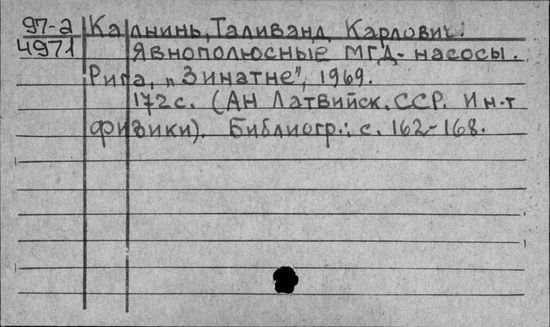 97-2 Калнинь, Таливалд Карлович.
4971 Явнополюсные МГД-насосы.
Рига, „Зинатне", 1969.
172 с. (АН Латвийск. ССР. Ин-т
физики). Библиогр.: с. 162-168.